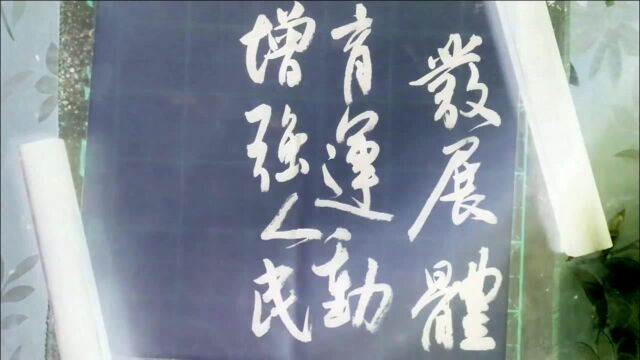 發展體
育運動
增強人民